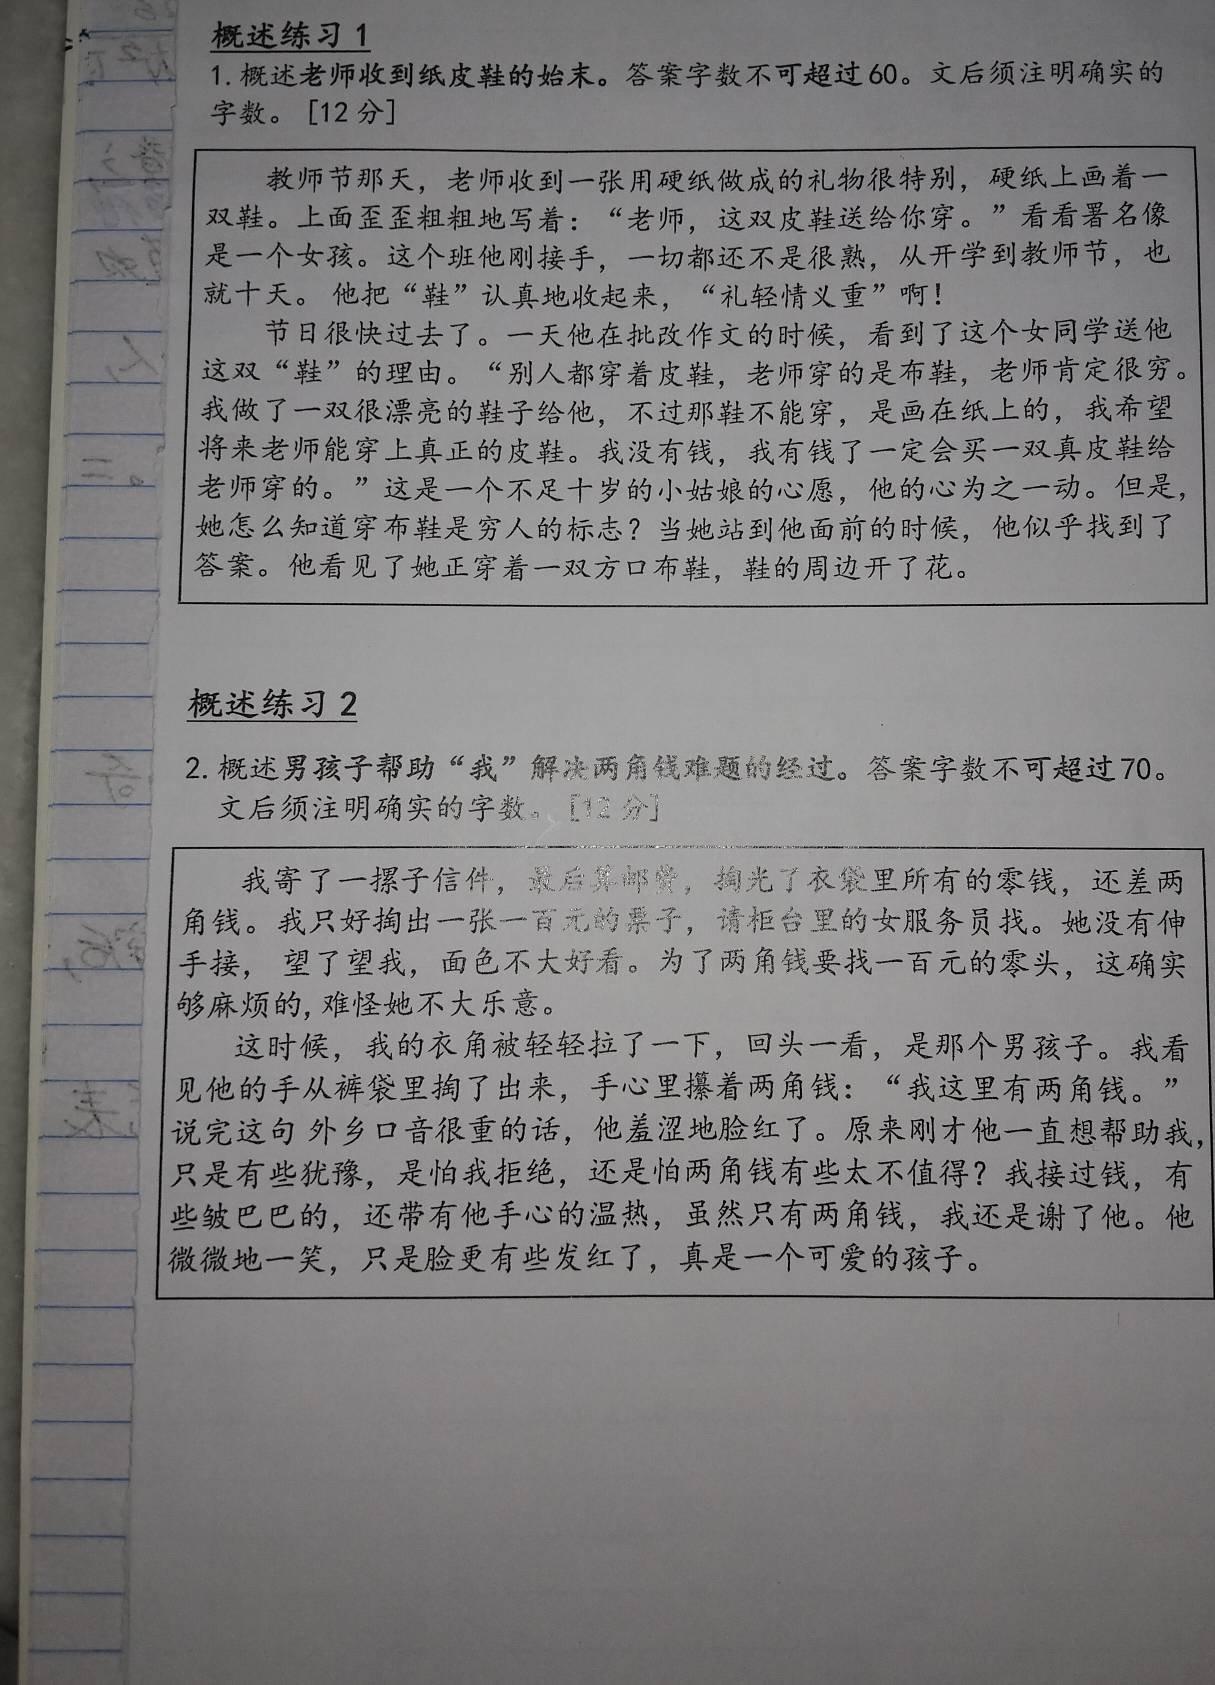 概述练习 1
1. 概述老师收到纸皮鞋的始末。答案字数不可超过60。文后须注明确实的
字数。[12 分]
教师节那天，老师收到一张用硬纸做成的礼物很特别，硬纸上画着一
双鞋。上面歪歪粗粗地写着：“老师，这双皮鞋送给你穿。”看看署名像
是一个女孩。这个班他刚接手，一切都还不是很熟，从开学到教师节，也
就十天。他把“鞋”认真地收起来，“礼轻情义重”啊！
节日很快过去了。一天他在批改作文的时候，看到了这个女同学送他
这双“鞋”的理由。“别人都穿着皮鞋，老师穿的是布鞋，老师肯定很穷。
我做了一双很漂亮的鞋子给他，不过那鞋不能穿，是画在纸上的，我希望
将来老师能穿上真正的皮鞋。我没有钱，我有钱了一定会买一双真皮鞋给
老师穿的。”这是一个不足十岁的小姑娘的心愿，他的心为之一动。但是，
她怎么知道穿布鞋是穷人的标志？当她站到他面前的时候，他似乎找到了
答案。他看见了她正穿着一双方口布鞋，鞋的周边开了花。
概述练习 2
2. 概述男孩子帮助“我”解决两角钱难题的经过。答案字数不可超过70。
文后须注明确实的字数。[12 分]
我寄了一摞子信件，最后算邮费，掏光了衣袋里所有的零钱，还差两
角钱。我只好掏出一张一百元的票子，请柜台里的女服务员找。她没有伸
手接，望了望我，面色不大好看。为了两角钱要找一百元的零头，这确实
够麻烦的，难怪她不大乐意。
这时候，我的衣角被轻轻拉了一下，回头一看，是那个男孩子。我看
见他的手从裤袋里掏了出来，手心里攥着两角钱：“我这里有两角钱。”
说完这句外乡口音很重的话，他羞涩地脸红了。原来刚才他一直想帮助我，
只是有些犹豫，是怕我拒绝，还是怕两角钱有些太不值得？我接过钱，有
些皱巴巴的，还带有他手心的温热，虽然只有两角钱，我还是谢了他。他
微微地一笑，只是脸更有些发红了，真是一个可爱的孩子。